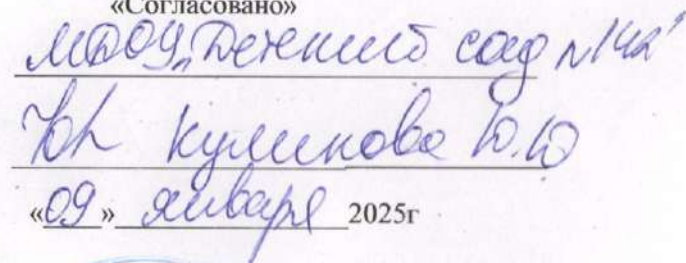 «Согласовано»
МДОУ „Детский сад №142"
Куликова Ю.Ю
«09» января 2025г